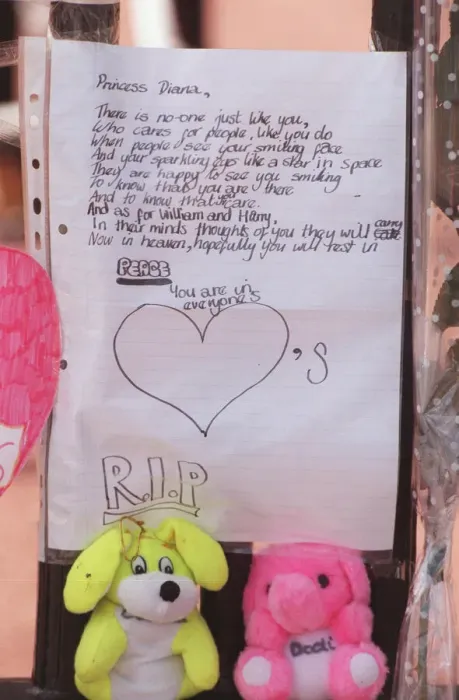 Princess Diana,
There is no-one just like you,
Who cares for people, like you do
When people see your smiling face
And your sparkling eyes like a star in space
They are happy to see you smiling
To know that you are there
And to know that care.
And as for William and Harry,
In their minds thoughts of you they will carry
Now in heaven, hopefully you will rest in
PEACE
You are in
everyone's
's
R.I.P
Dodi